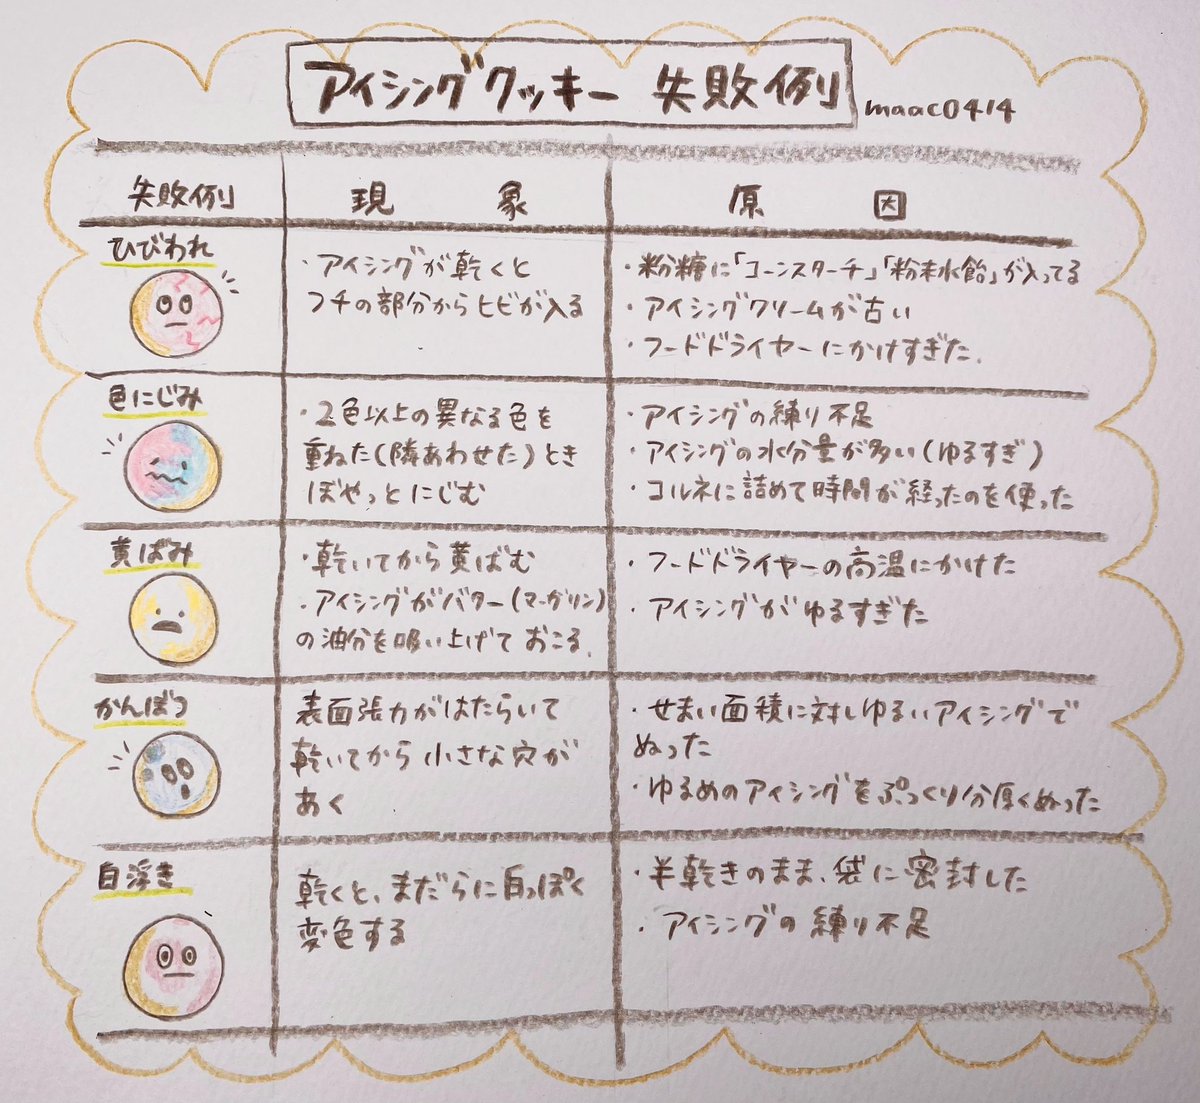 アイシングクッキー 失敗例
maac0414
失敗例 現象 原因
ひびわれ
・アイシングが乾くと
フチの部分からヒビが入る
・粉糖に「コーンスターチ」「粉末水飴」が入ってる
・アイシングクリームが古い
・フードドライヤーにかけすぎた.
色にじみ
・2色以上の異なる色を
重ねた(隣あわせた)とき
ぼやっとにじむ
・アイシングの練り不足
・アイシングの水分量が多い(ゆるすぎ)
・コルネに詰めて時間が経ったのを使った
黄ばみ
・乾いてから黄ばむ
・アイシングがバター(マーガリン)
の油分を吸い上げておこる.
・フードドライヤーの高温にかけた
・アイシングがゆるすぎた
かんぼつ
表面張力がはたらいて
乾いてから小さな穴が
あく
・せまい面積に対しゆるいアイシングで
ぬった
・ゆるめのアイシングをぷっくり分厚くぬった
白浮き
乾くと、まだらに白っぽく
変色する
・半乾きのまま、袋に密封した
・アイシングの練り不足